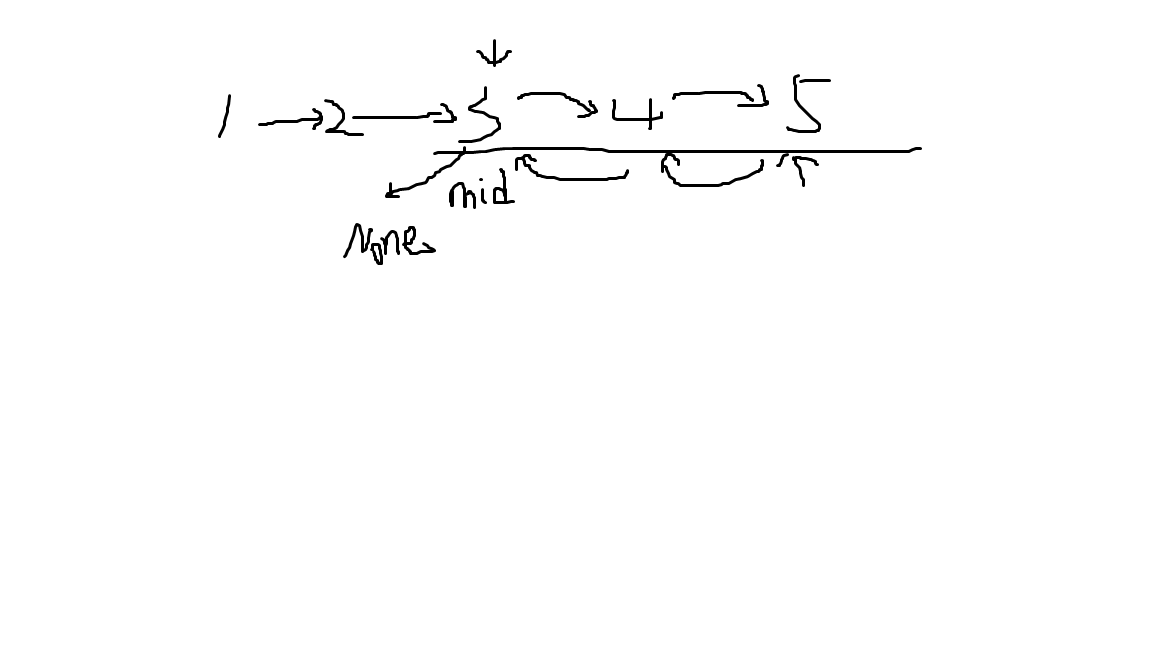 1 → 2 → 3 → 4 → 5
mid
None